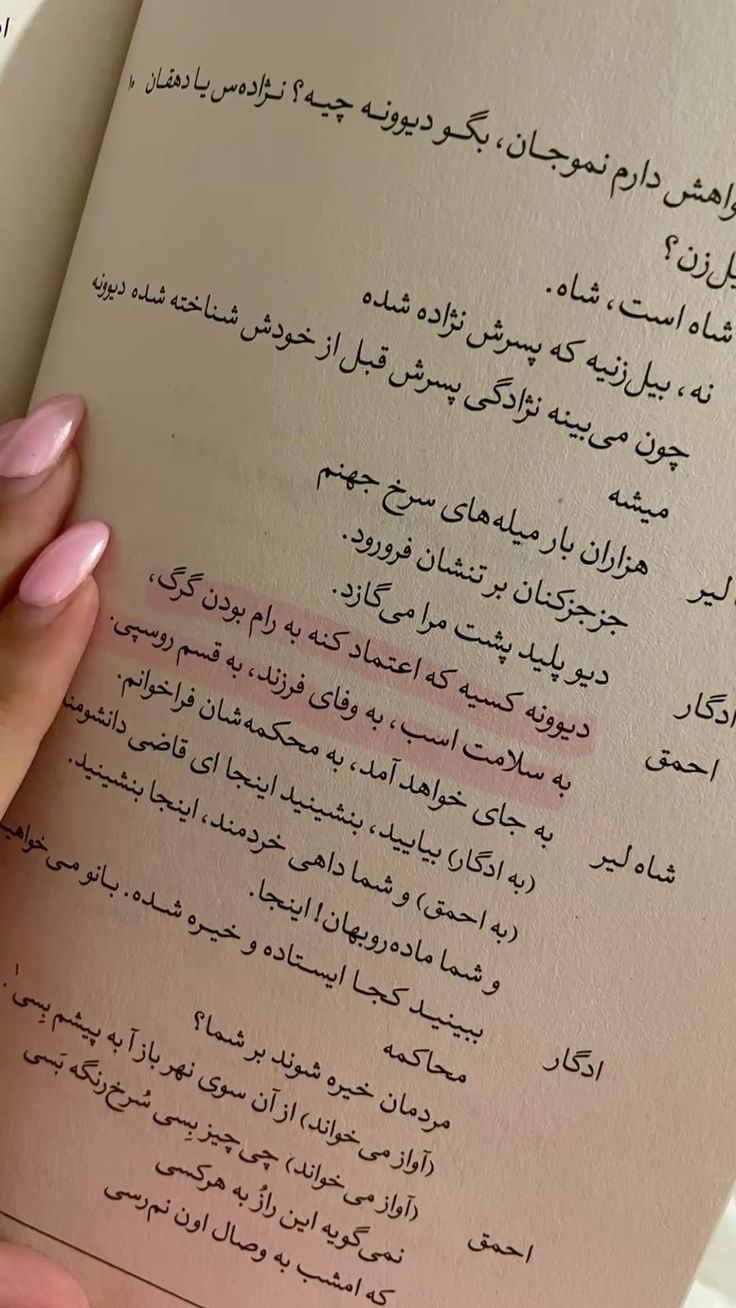 دارم نموجان، بگو دیوونه چیه؟ نژاده‌س یا دهقان
شاه است، شاه.
نه، بیل‌زنیه که پسرش نژاده شده
چون می‌بینه نژادگی پسرش قبل از خودش شناخته شده دیوونه
میشه
لیر هزاران بار میله‌های سرخ جهنم
جزجزکنان بر تنشان فرورود.
ادگار دیو پلید پشت مرا می‌گازد.
احمق دیوونه کسیه که اعتماد کنه به رام بودن گرگ،
به سلامت اسب، به وفای فرزند، به قسم روسپی.
شاه لیر به جای خواهد آمد، به محکمه‌شان فراخوانم.
(به ادگار) بیایید، بنشینید اینجا ای قاضی
(به احمق) و شما داهی خردمند، اینجا بنشینید.
و شما ماده‌روبهان! اینجا.
ادگار ببینید کجا ایستاده و خیره شده. بانو
محاکمه
مردمان خیره شوند بر شما؟
(آواز می‌خواند) از آن سوی نهر بازآ به پیشم بِسی.۱
احمق (آواز می‌خواند) چی چیز بِسی سُرخ‌رنگه بَسی
نمی‌گویه این رازُ به هرکسی
که امشب به وصال اون نم‌رسی